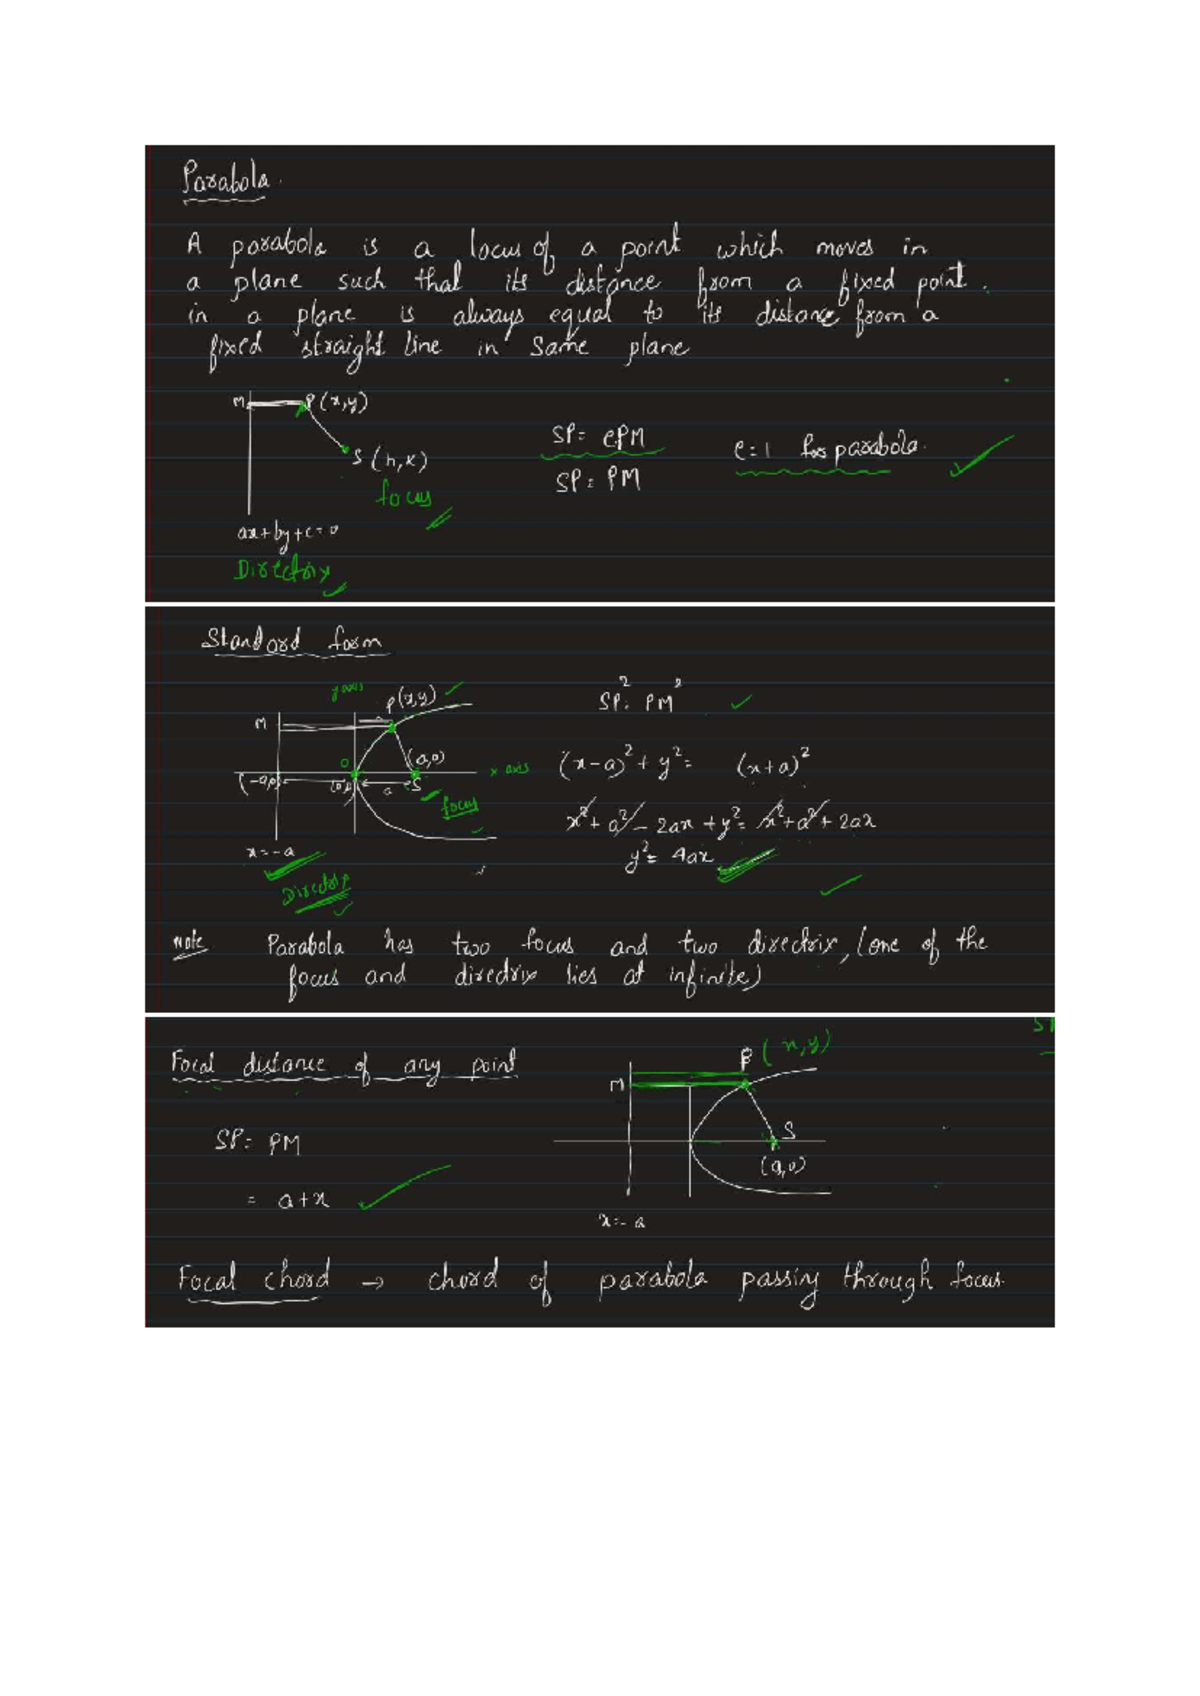 Parabola.
A parabola is a locus of a point which moves in
a plane such that its distance from a fixed point.
in a plane is always equal to its distance from a
fixed straight line in same plane
M P(x,y)
S(h,k)
focus
ax+by+c=0
Directrix
SP = ePM
SP = PM
e=1 for parabola.
Standard form
y axis
P(x,y)
M
O
(a,0)
x axis
(-a,0)
(0,0)
a
S
focus
x=-a
Directrix
SP² = PM²
(x-a)² + y² = (x+a)²
x²+a²-2ax+y² = x²+a²+2ax
y² = 4ax
Note Parabola has two focus and two directrix, (one of the
focus and directrix lies at infinite)
Focal distance of any point
SP = PM
= a+x
P(x,y)
M
S
(a,0)
x=-a
Focal chord → chord of parabola passing through focus.